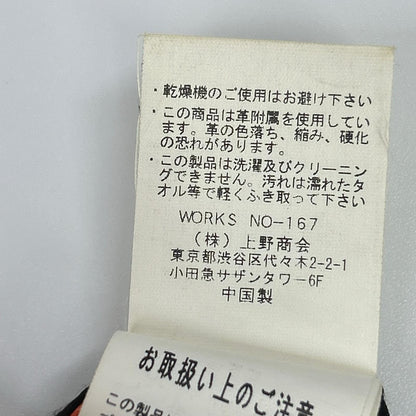 ・乾燥機のご使用はお避け下さい
・この商品は革附属を使用してい
ます。革の色落ち、縮み、硬化
の恐れがあります。
・この製品は洗濯及びクリーニン
グできません。汚れは濡れたタ
オル等で軽くふき取って下さい
WORKS NO-167
(株)上野商会
東京都渋谷区代々木2-2-1
小田急サザンタワー6F
中国製
お取扱い上のご注意
この製品は